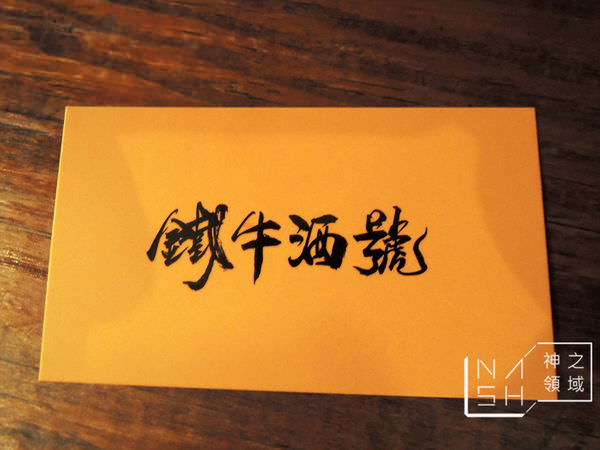 鐵牛酒號
NASH
神之
領域